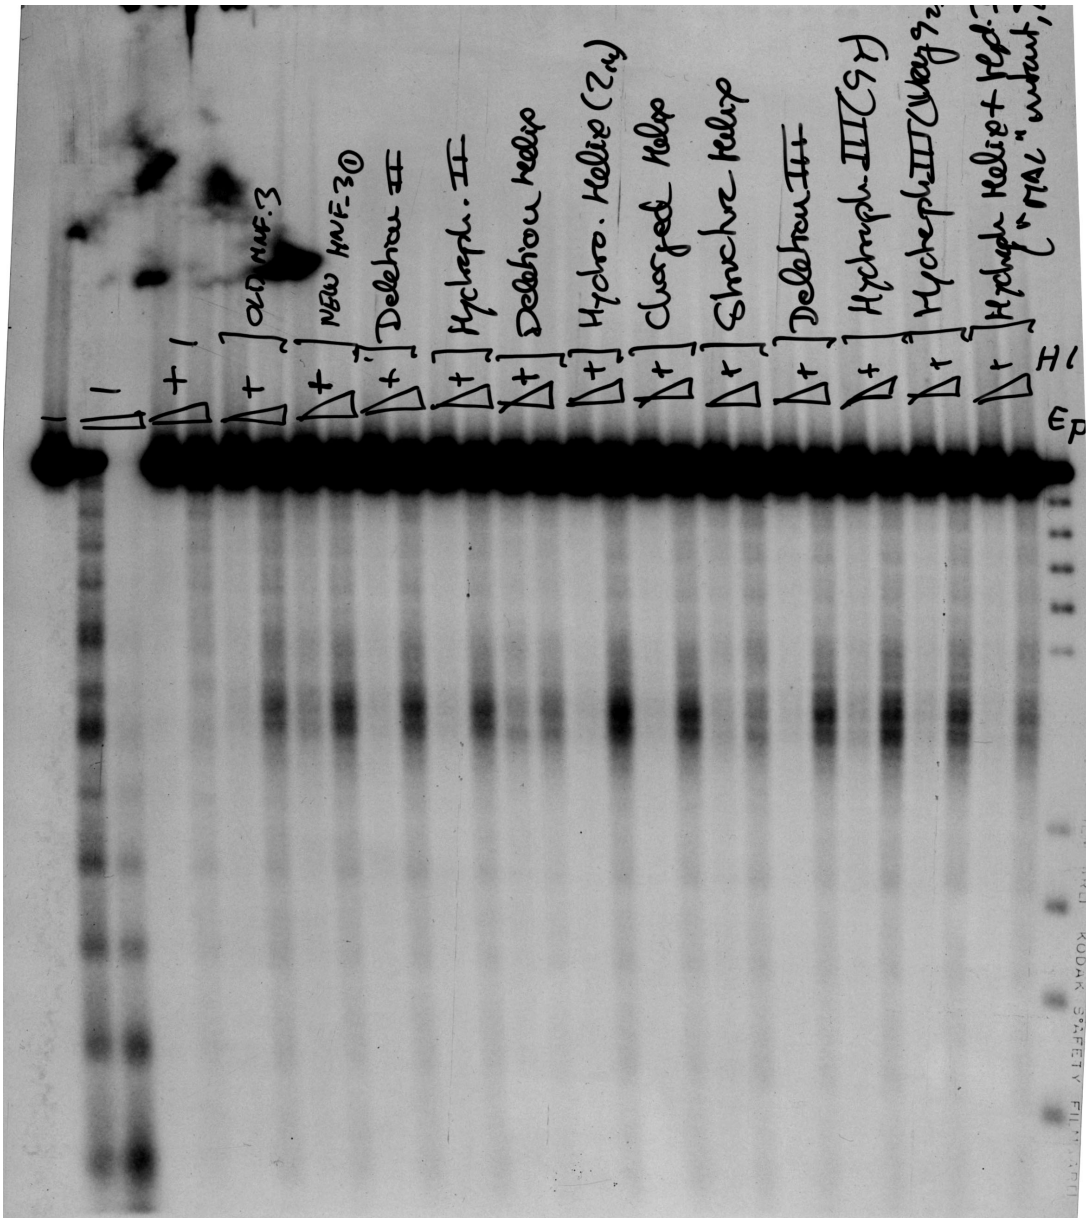 OLD HNF-3
NEW HNF-3①
Deletion II
Hydroph. II
Deletion Helix
Hydro. Helix (2M)
Charged Helix
Helix
Deletion III
Hydroph III (GY)
Hydroph III
Hydroph Helix + Hyd.
("MAL" mutant,
− + − + + + + + + + + + + + + H1
− Ep
KODAK SAFETY FILM